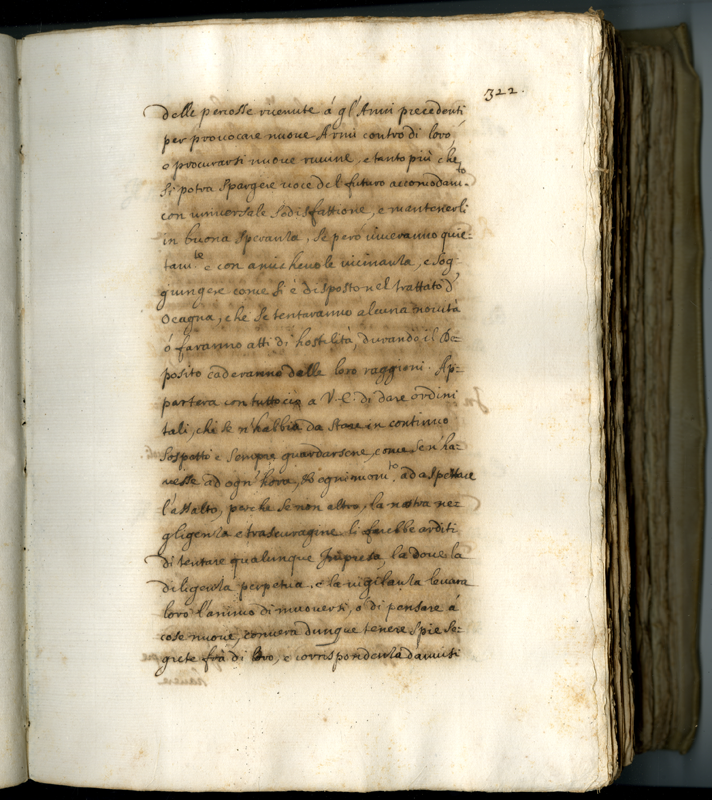 322.
delle percosse riceuute á gl'Anni precedenti
per prouocare nuoue Armi contro di loro,
o procurarsi nuoue ruuine, e tanto più che
si potra spargere uoce del futuro accomodam.to
con uniuersale sodisfattione, e mantenerli
in buona speranza, se però uiueranno quie=
tam.te e con amicheuole uicinanza, e sog=
giungere come si è disposto nel trattato d'
Ocagna, che se tentaranno alcuna nouità
ó faranno atti di hostilità, durando il De=
posito caderanno dalle loro raggioni. Ap=
partera con tutto cio a V.E. di dare ordini
tali, che se n'habbia da stare in continuo
sospetto e sempre guardarsene, come se n'ha=
uesse ad ogn'hora, et ogni mom.to ad aspettare
l'assalto, perche se non altro, la nostra ne=
gligenza e trascuragine li farebbe arditi
di tentare qualunque Impresa, la doue la
diligenza perpetua, e la uigilanza leuara
loro l'animo di muouersi, o di pensare á
cose nuoue, conuera dunque tenere spie se=
grete frà di loro, e corrispondenza d'auuisi